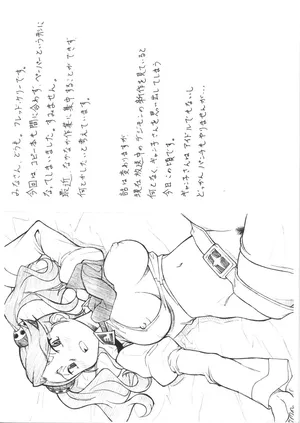 みなさん、どうも。フレッド・ケリーです。
今回はコピー本も間に合わずペーパーという形に
なってしまいました。すみません。
最近なかなか作業に集中することができず
何とかしたいと考えています。
話は変わりますが
現在放送中のデジモンの新作を見ていると
何となくギャン子さんを思い出してしまう
今日この頃です。
ギャン子さんはアイドルでもないし
どっかんパンチもやりませんが…